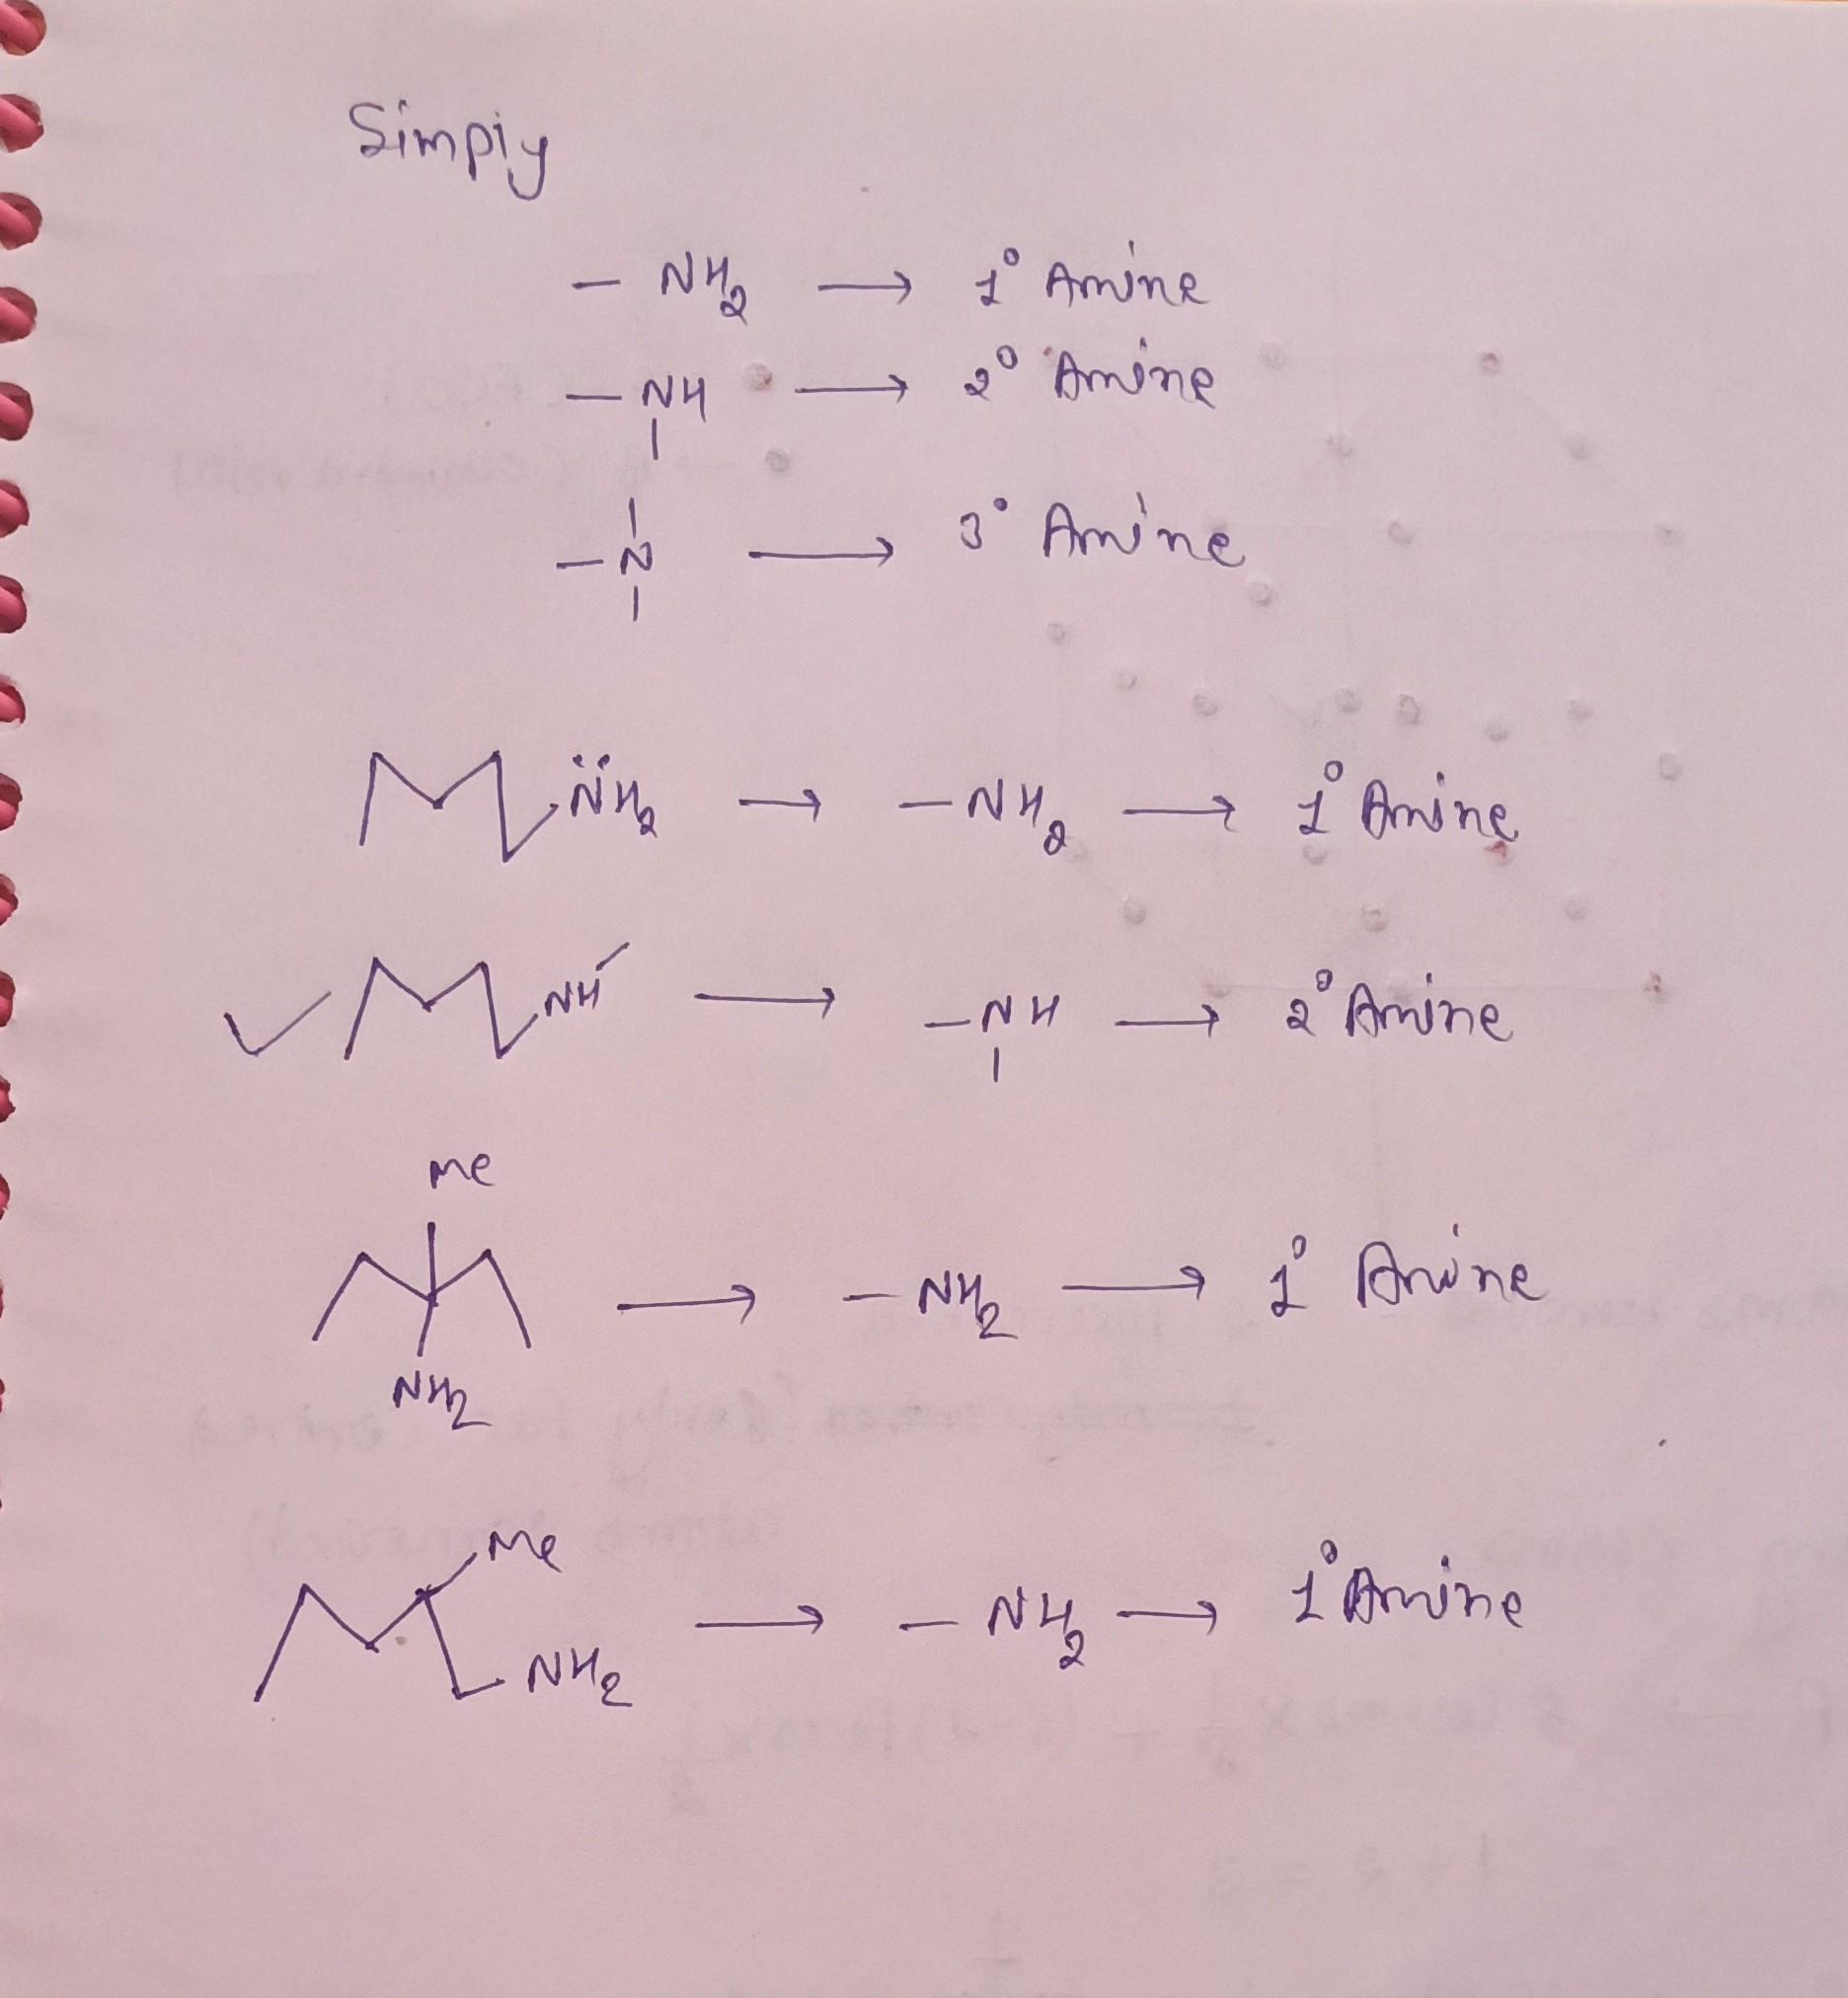 Simply
– NH2 → 1° Amine
– NH → 2° Amine
– N → 3° Amine
NH2 → – NH2 → 1° Amine
NH → – NH → 2° Amine
Me
→ – NH2 → 1° Amine
NH2
Me
→ – NH2 → 1° Amine
NH2